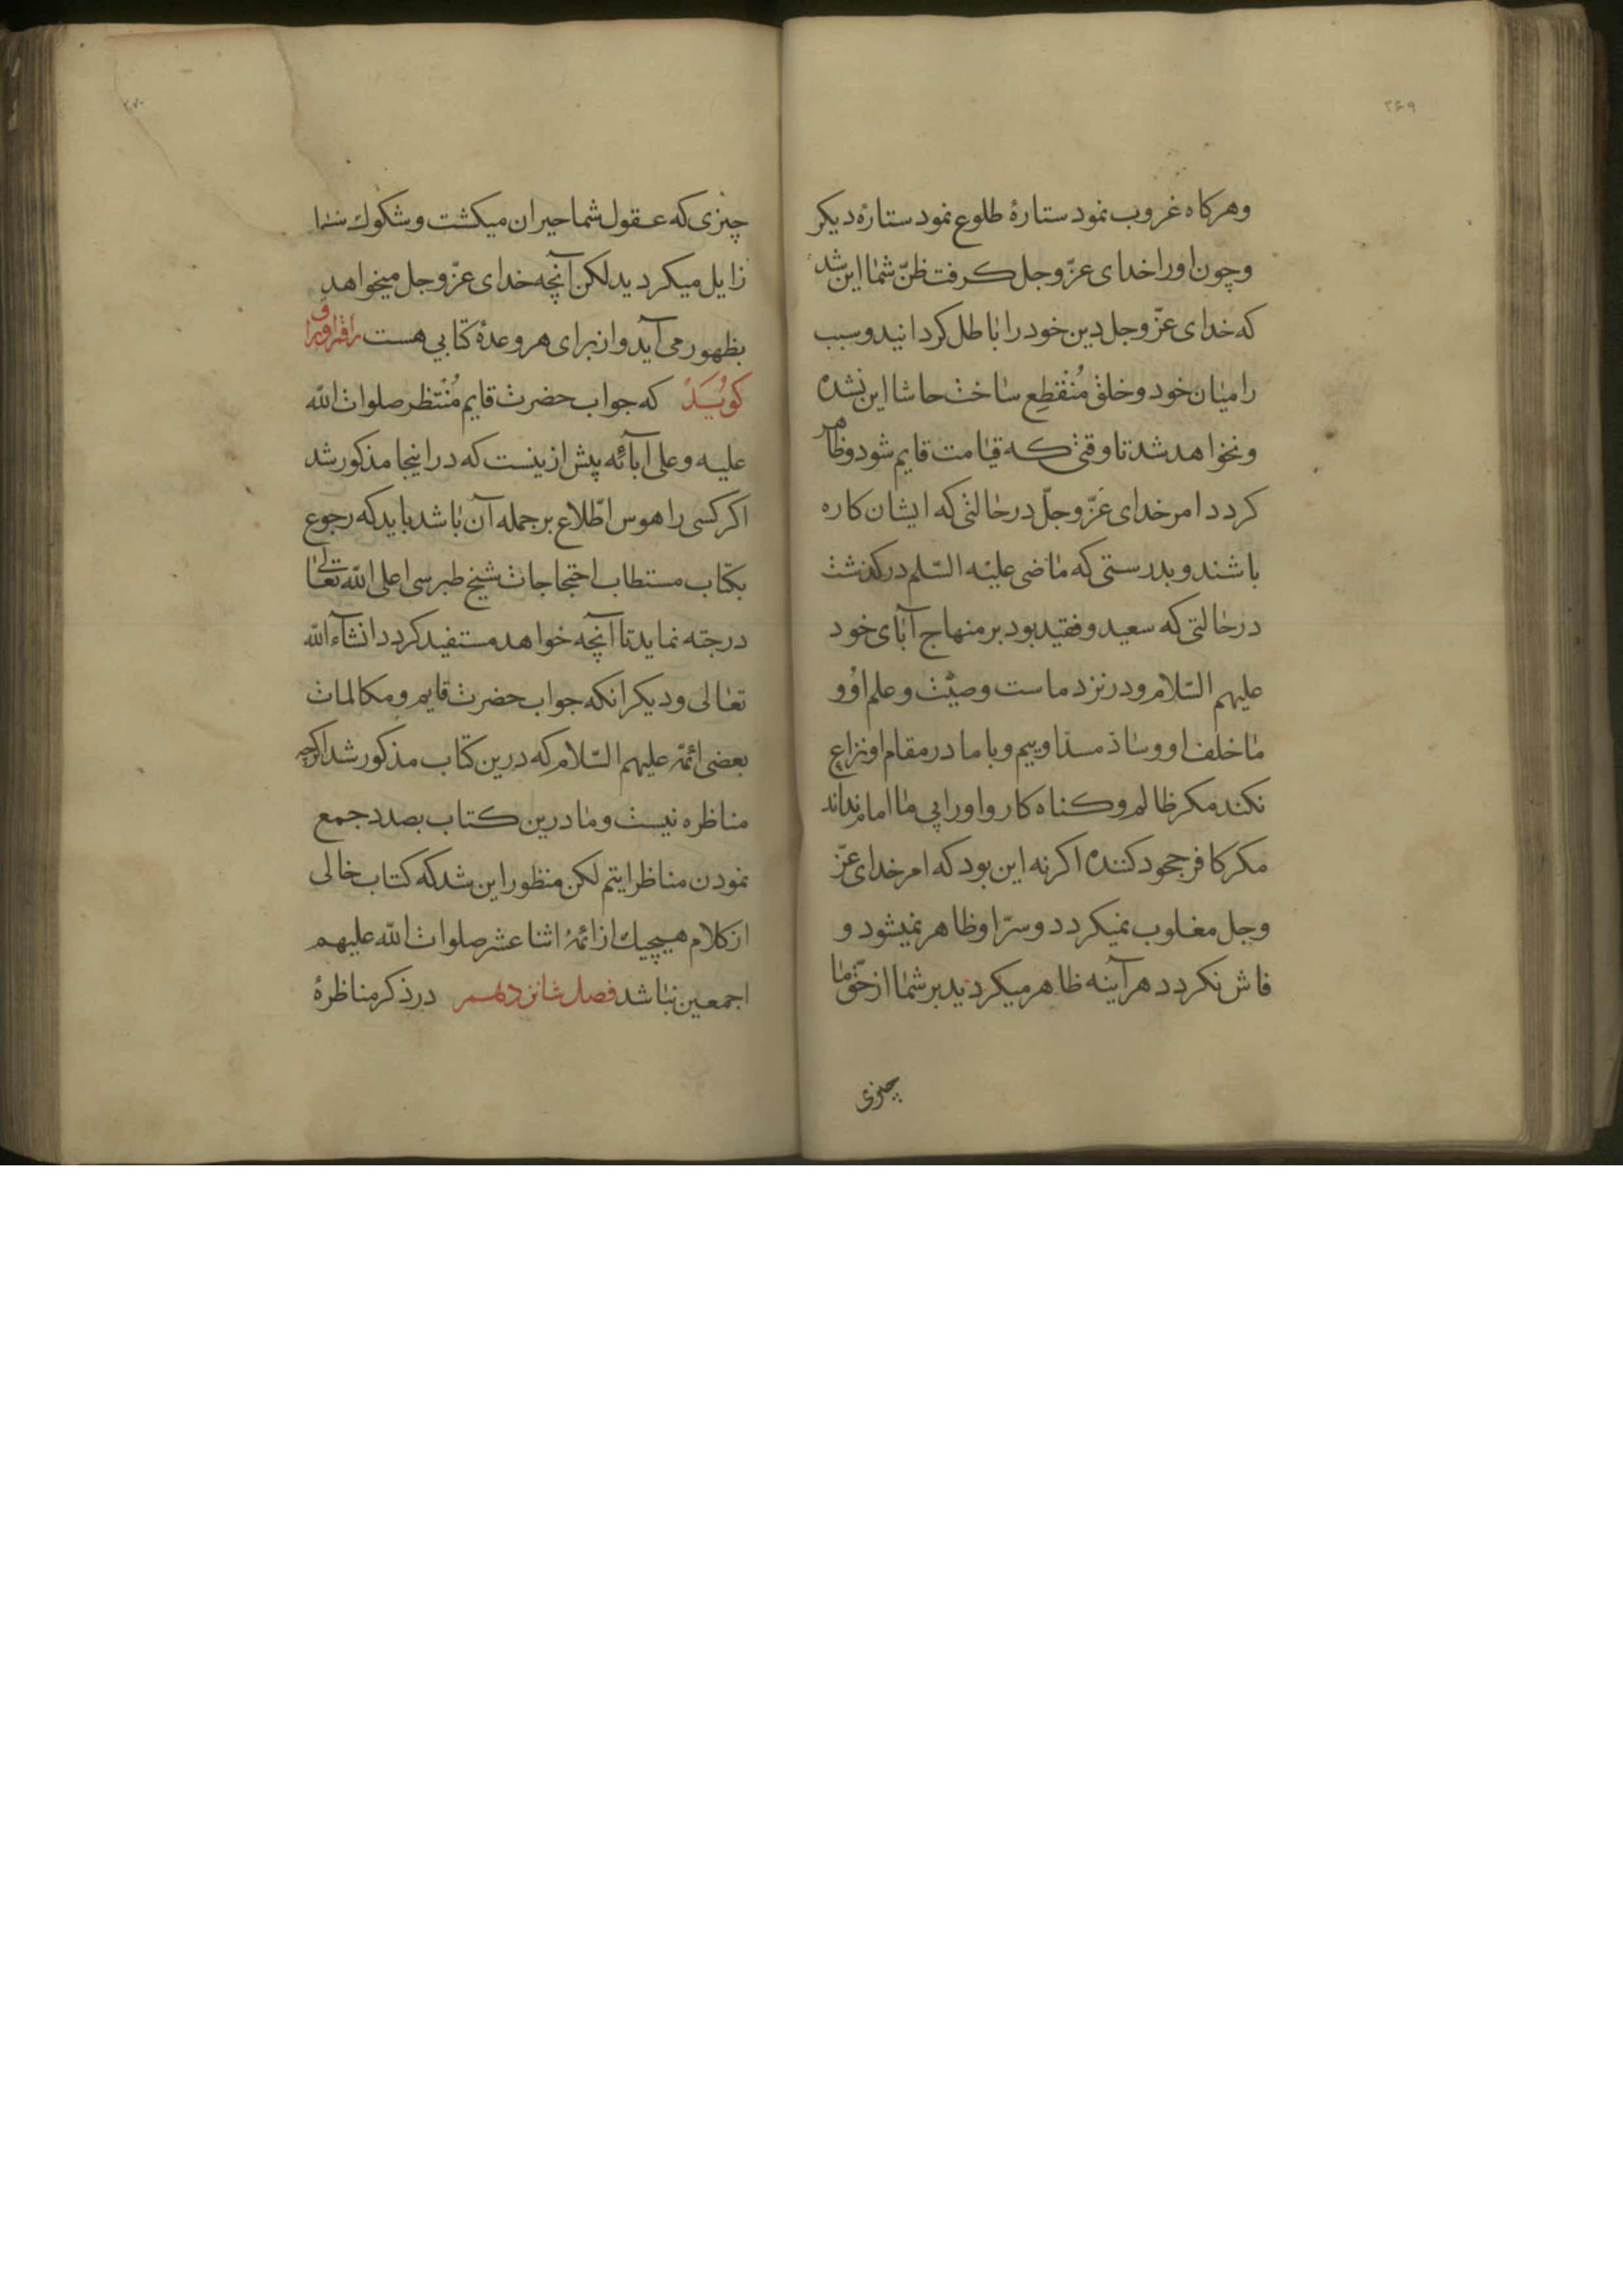 ۲۶۹
وهركاه غروب نمود ستارۀ طلوع نمود ستارۀ ديكر
وچون اورا خداى عزّ وجل كرفت ظنّ شما اين شد
كه خداى عزّ وجل دين خود را باطل كردانيد وسبب
را ميان خود وخلق مُنْقَطِع ساخت حاشا اين نشده
ونخواهد شد تا وقتى كه قيامت قايم شود وظاهر
كردد امر خداى عَزّ وجلّ درحالتى كه ايشان كاره
باشند وبدرستى كه ماضى عليه السّلم دركذشت
درحالتى كه سعيد وفقيد بود بر منهاج آباى خود
عليهم السّلام ودر نزد ماست وصيّت وعلم او و
ما خلف او وساذ مسدّ اوييم وبا ما در مقام او نزاع
نكند مكر ظالم وكناه كار واورا پى ما امام نداند
مكر كافر جحود كننده اكر نه اين بود كه امر خداى عزّ
وجل مغلوب نميكردد وسرّ او ظاهر نميشود و
فاش نكردد هر آينه ظاهر ميكرديد بر شما از حقّ ما
چيزى
۲۷۰
چيزى كه عقول شما حيران ميكشت وشكوك شما
زايل ميكرديد لكن آنچه خداى عزّ وجل ميخواهد
بظهور مى آيد واز براى هر وعدۀ كتابى هست راقم اوراق
كويَد كه جواب حضرت قايم مُنْتظر صلوات الله
عليه وعلى آبائه پيش ازينست كه در اينجا مذكور شد
اكر كسى را هوس اطّلاع بر جمله آن باشد بايد كه رجوع
بكتاب مستطاب احتجاجات شيخ طبرسى اعلى الله تعالى
درجته نمايد تا آنچه خواهد مستفيد كردد انشآء الله
تعالى وديكر انكه جواب حضرت قايم ومكالمات
بعضى ائمّه عليهم السّلام كه درين كتاب مذكور شد اكرچه
مناظره نيست وما درين كتاب بصدد جمع
نمودن مناظرايتم لكن منظور اين شد كه كتاب خالى
از كلام هيچيك از ائمۀ اثنا عشر صلوات الله عليهم
اجمعين نباشد فصل شانزدهم در ذكر مناظرۀ